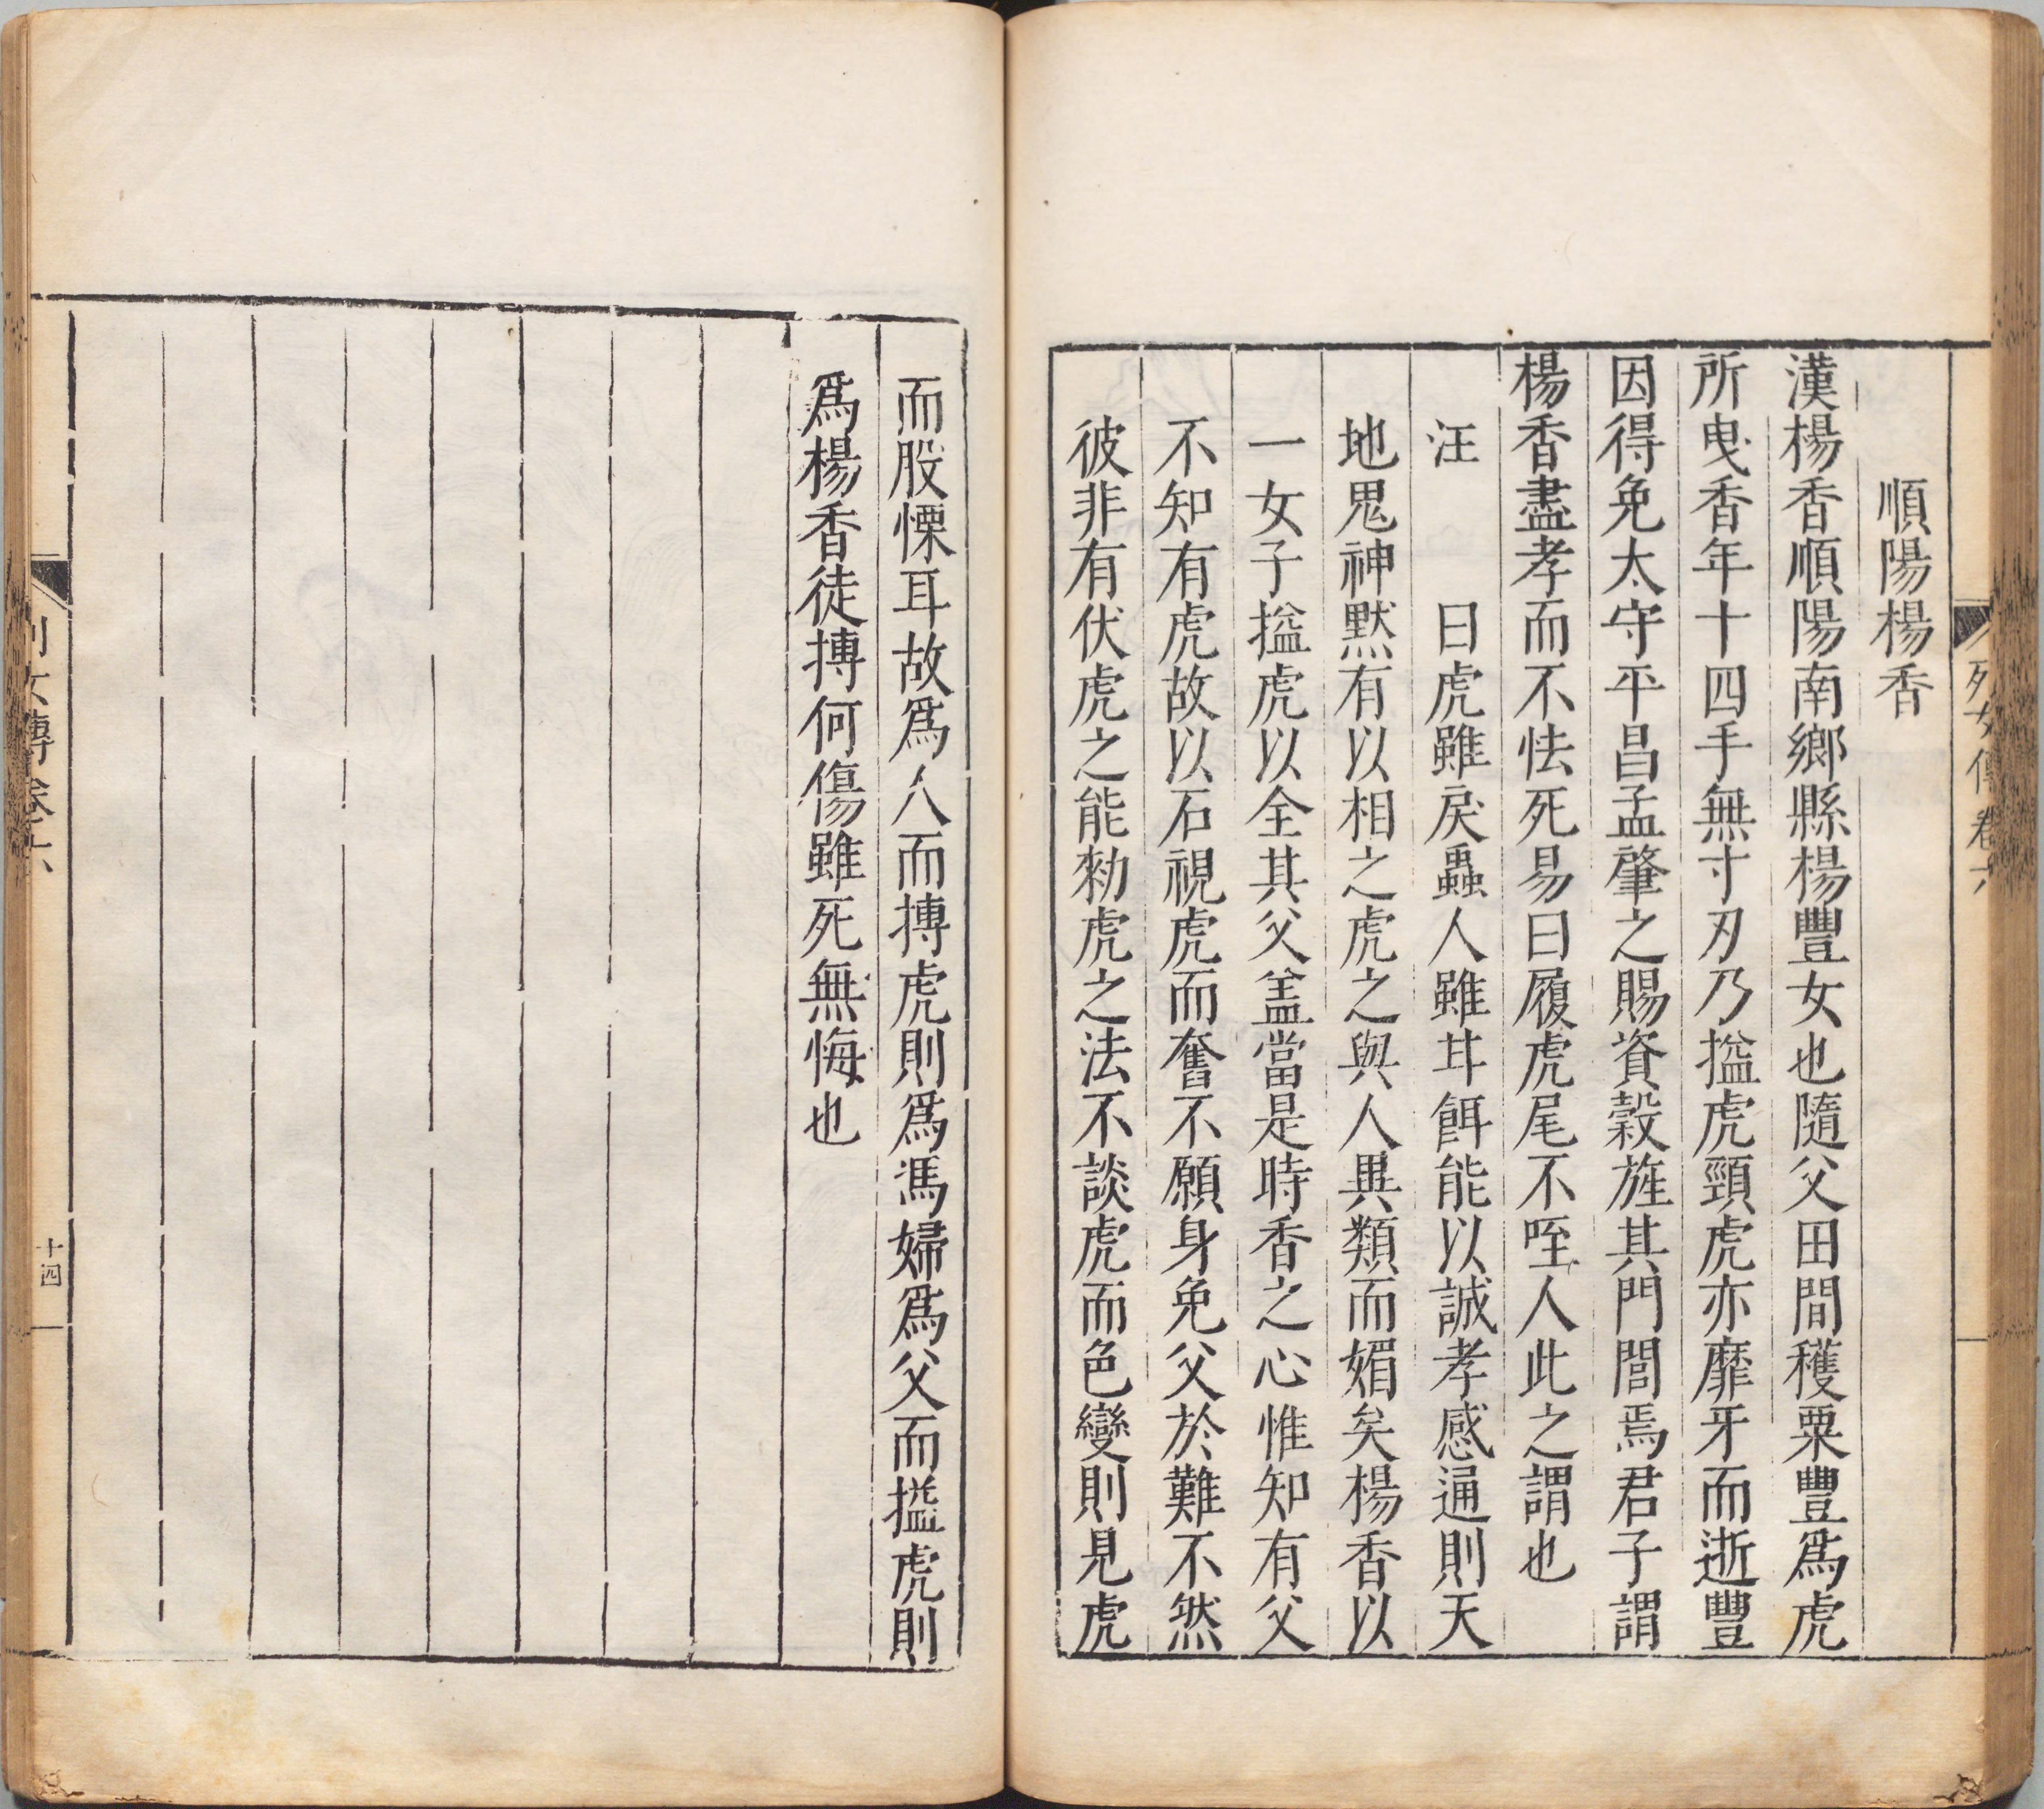 順陽楊香
漢楊香順陽南鄉縣楊豐女也隨父田間穫粟豐爲虎
所曳香年十四手無寸刃乃搤虎頸虎亦靡牙而逝豐
因得免太守平昌孟肇之賜資穀旌其門閭焉君子謂
楊香盡孝而不怯死易曰履虎尾不咥人此之謂也
汪 曰虎雖戾蟲人雖甘餌能以誠孝感通則天
地鬼神默有以相之虎之與人異類而媚矣楊香以
一女子搤虎以全其父盖當是時香之心惟知有父
不知有虎故以石視虎而奮不願身免父於難不然
彼非有伏虎之能勑虎之法不談虎而色變則見虎
而股慄耳故爲人而搏虎則爲馮婦爲父而搤虎則
爲楊香徒搏何傷雖死無悔也
列女傳卷六
十四